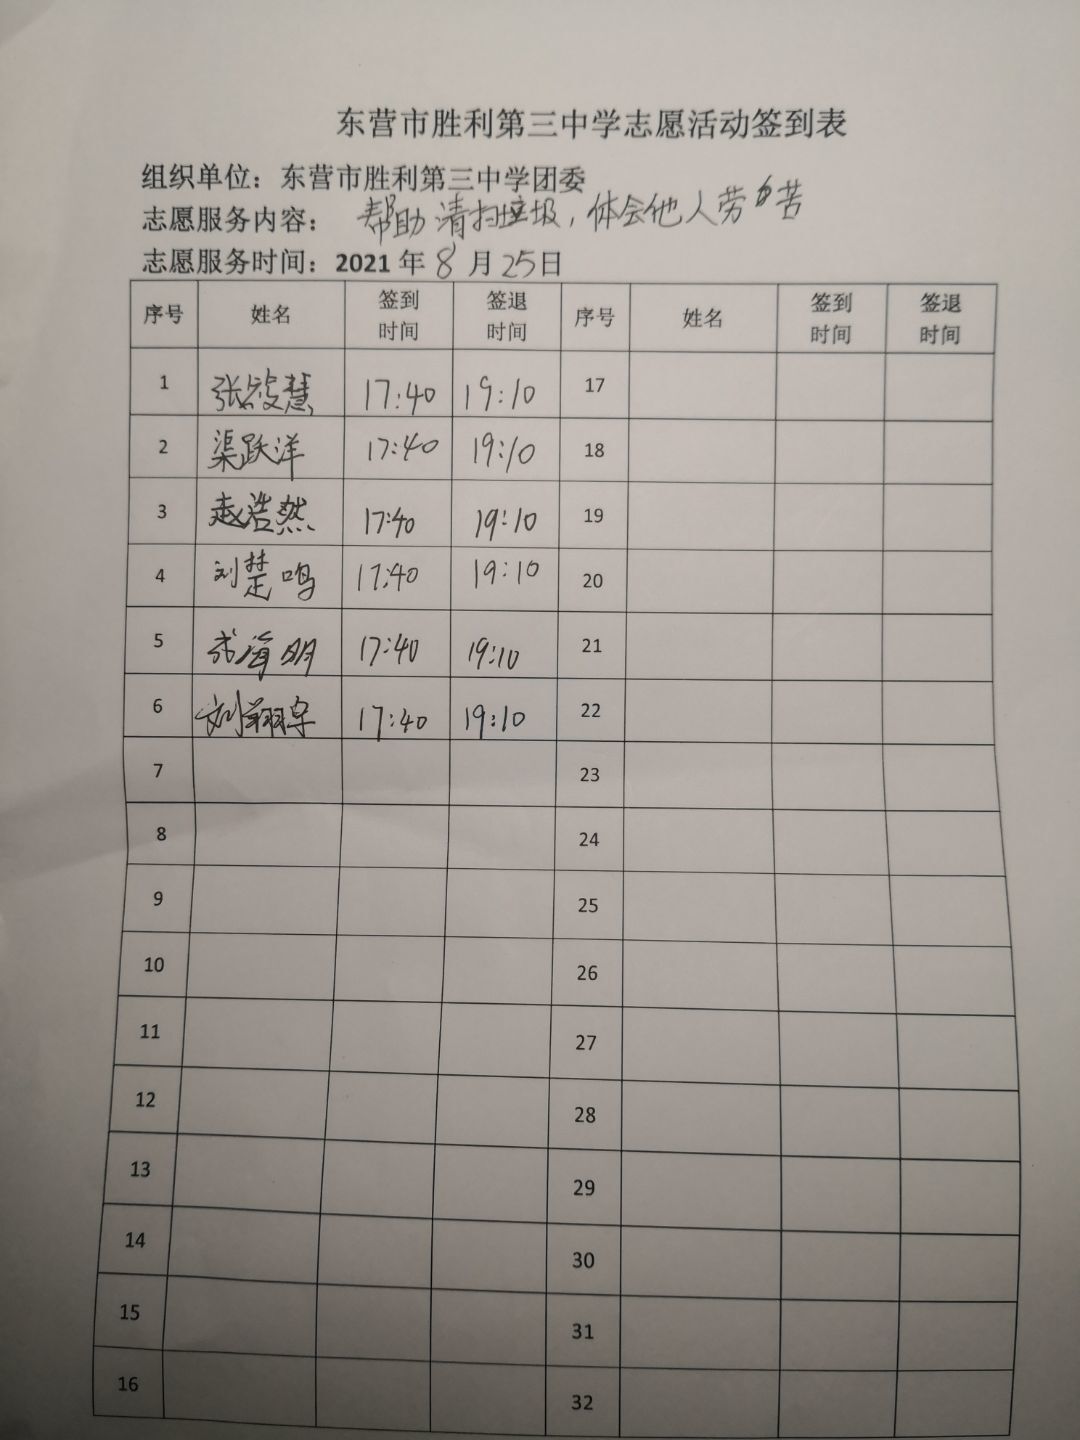 东营市胜利第三中学志愿活动签到表
组织单位：东营市胜利第三中学团委
志愿服务内容： 帮助清扫垃圾，体会他人劳苦
志愿服务时间：2021 年 8 月 25 日
序号 姓名 签到时间 签退时间 序号 姓名 签到时间 签退时间
1 张筱慧 17:40 19:10 17
2 渠跃洋 17:40 19:10 18
3 赵浩然 17:40 19:10 19
4 刘楚鸣 17:40 19:10 20
5 海明 17:40 19:10 21
6 刘翔宇 17:40 19:10 22
7 23
8 24
9 25
10 26
11 27
12 28
13 29
14 30
15 31
16 32